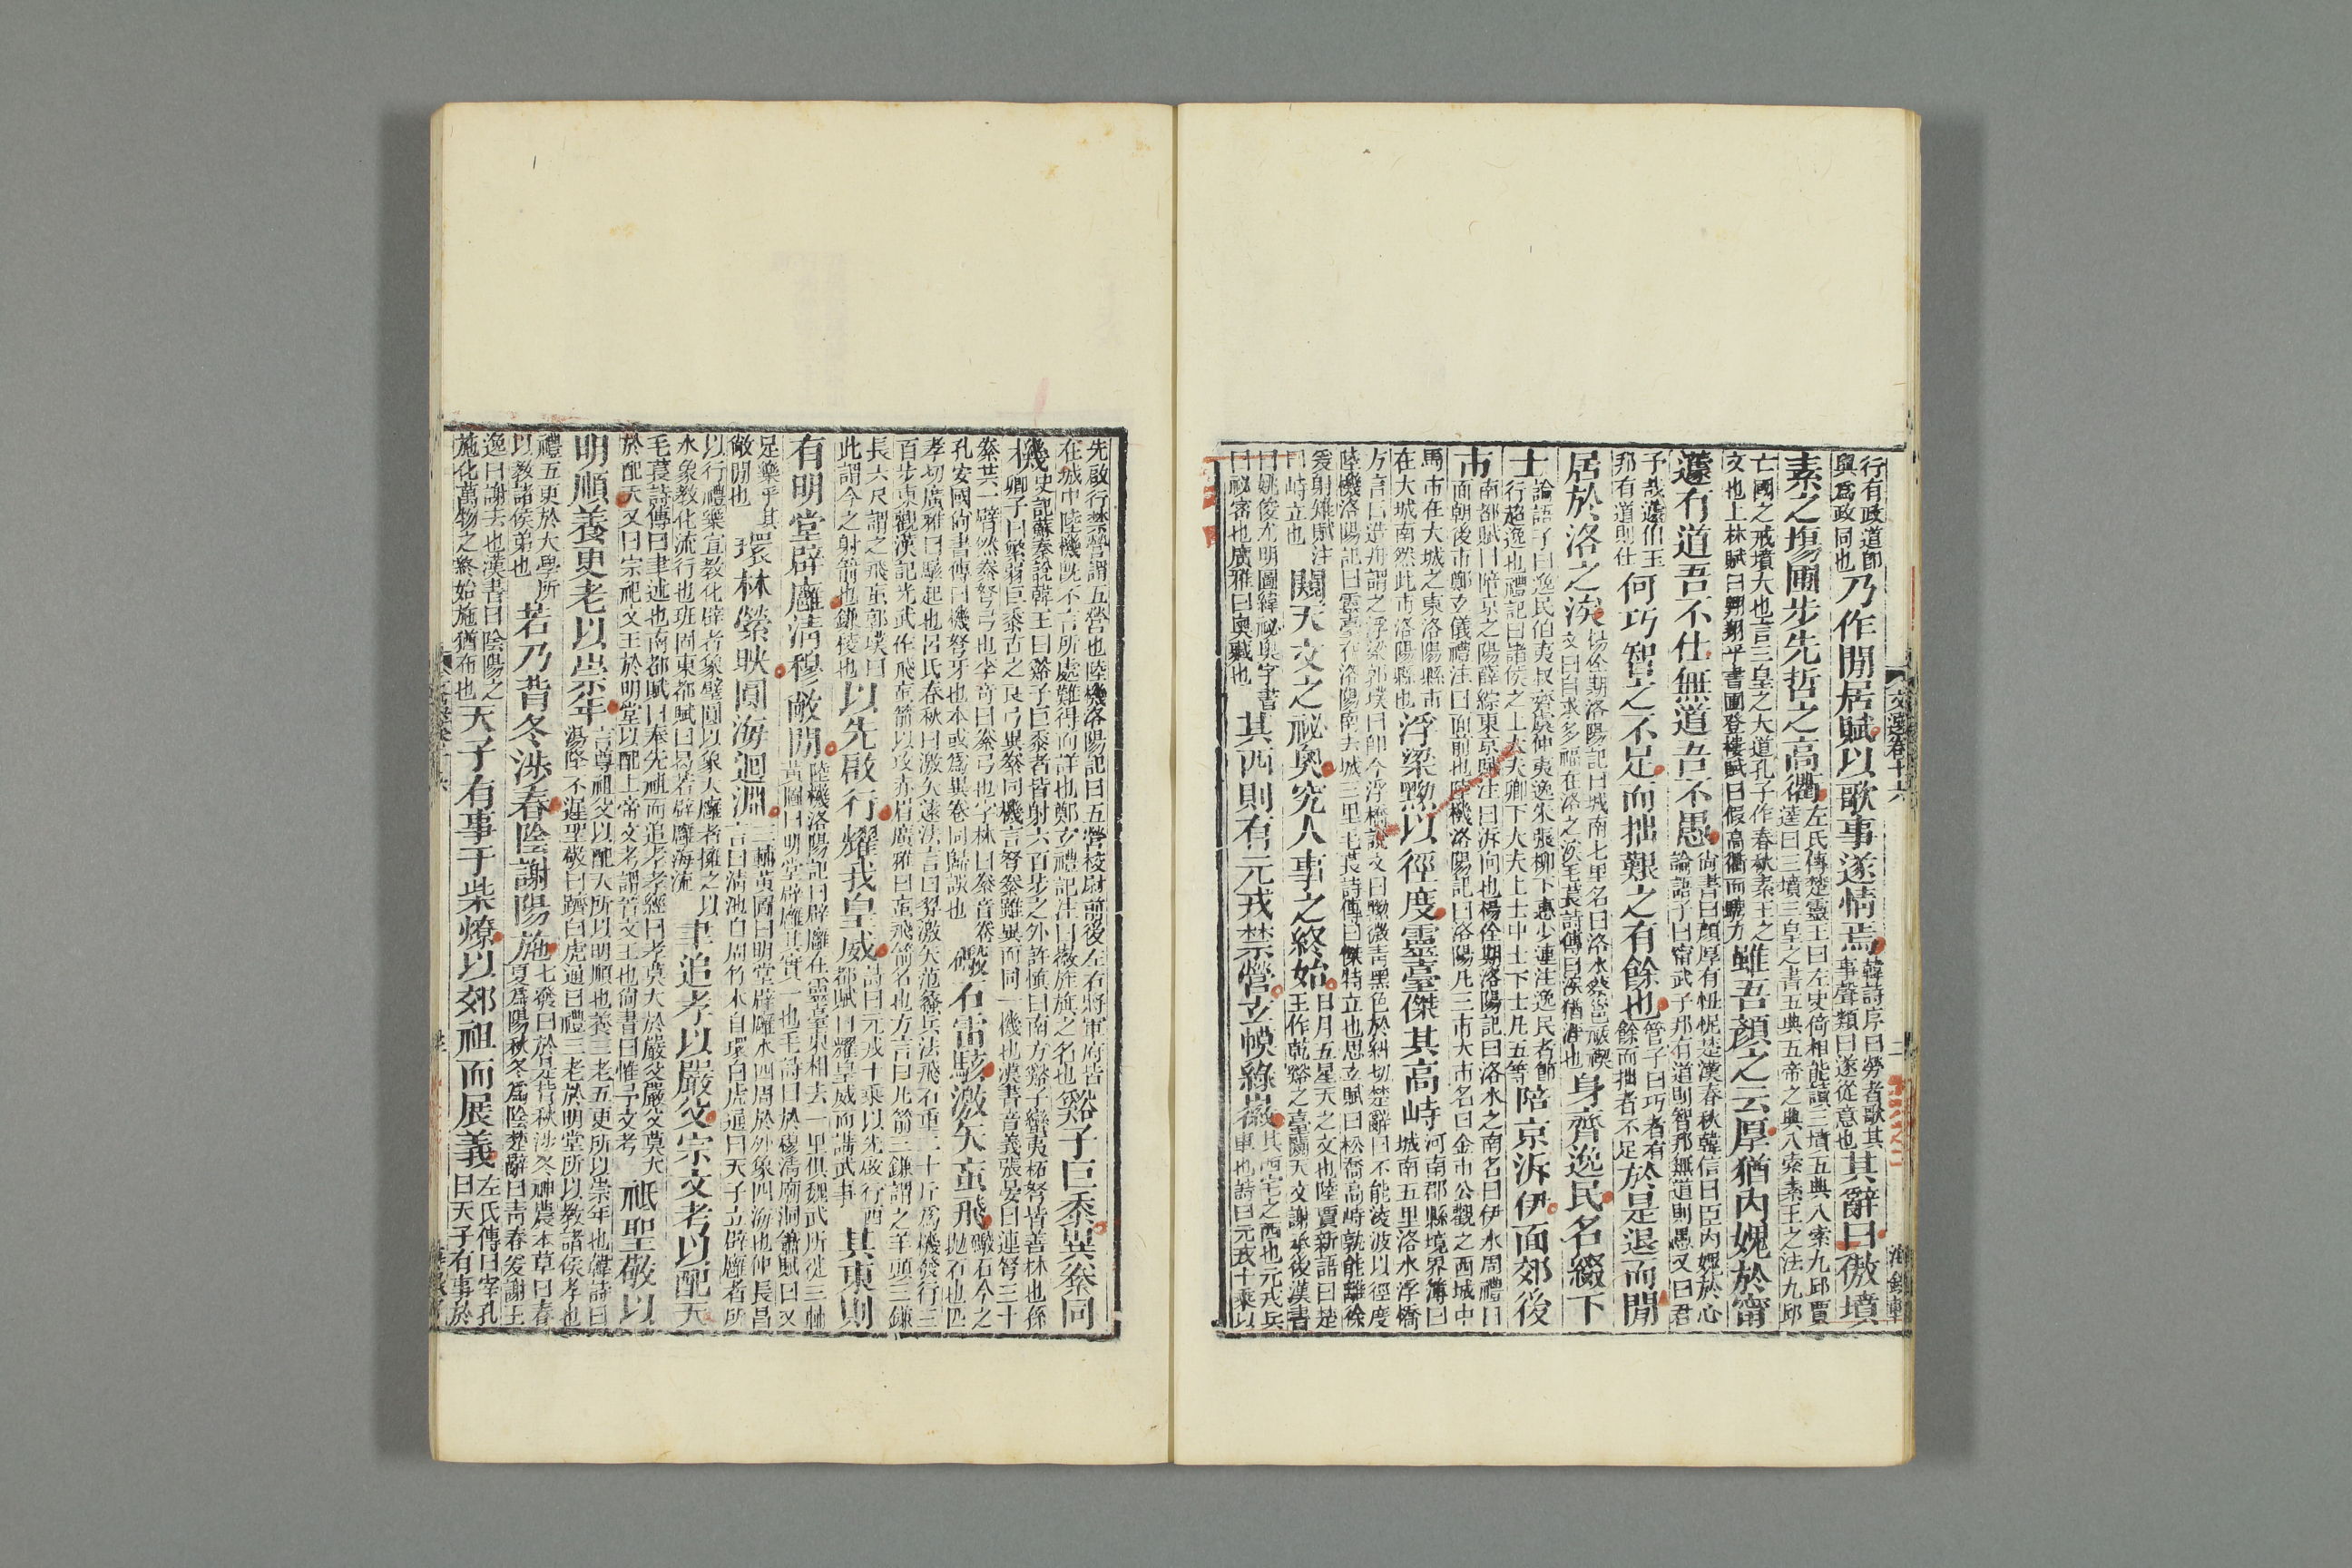 行有政道即
與爲政同也
乃作閒居賦以歌事遂情焉
韓詩序曰勞者歌其
事聲類曰遂從意也
其辭曰傲墳
素之塲圃步先哲之高衢
左氏傳楚靈王曰左史倚相能讀三墳五典八索九邱賈
逵曰三墳三皇之書五典五帝之典八索素王之法九邱
亡國之戒墳大也言三皇之大道孔子作春秋素王之
文也上林賦曰翺翔乎書圃登樓賦曰假高衢而騁力
雖吾顏之云厚猶内媿於甯
蘧有道吾不仕無道吾不愚
尚書曰顏厚有忸怩楚漢春秋韓信曰臣内媿於心
論語子曰甯武子邦有道則智邦無道則愚又曰君
子哉蘧伯玉
邦有道則仕
何巧智之不足而拙艱之有餘也
管子曰巧者有
餘而拙者不足
於是退而閒
居於洛之涘
楊佺期洛陽記曰城南七里名曰洛水
文曰自求多福在洛之涘毛萇詩傳曰涘猶涯也
身齊逸民名綴下
士
論語子曰逸民伯夷叔齊虞仲夷逸朱張柳下惠少連注逸民者節
行超逸也禮記曰諸侯之上大夫卿下大夫上士中士下士凡五等
陪京泝伊面郊後
市
南都賦曰陪京之陽薛綜東京賦注曰泝向也楊佺期洛陽記曰洛水之南名曰伊水周禮曰
面朝後市鄭玄儀禮注曰面前也陸機洛陽記曰洛陽凡三市大市名曰金市公觀之西城中
馬市在大城之東洛陽縣市
在大城南然此市洛陽縣也
浮梁黝以徑度靈臺傑其高峙
河南郡縣境界簿曰
城南五里洛水浮橋
方言曰造舟謂之浮梁郭璞曰即今浮橋說文曰黝微青黑色於糾切楚辭曰不能凌波以徑度
陸機洛陽記曰靈臺在洛陽南去城三里毛萇詩傳曰傑特立也思玄賦曰松喬高峙孰能離徐
爰射雉賦注
曰峙立也
闚天文之祕奥究人事之終始
日月五星天之文也陸賈新語曰楚
王作乾谿之臺闚天文謝承後漢書
曰姚俊尤明圖緯祕奥字書
曰祕密也廣雅曰奥藏也
其西則有元戎禁營玄幙綠徽
其西宅之西也元戎兵
車也詩曰元戎十乘以
文選卷十六
二
海録軒
先啟行禁營謂五營也陸機洛陽記曰五營校尉前後左右將軍府皆
在城中陸機既不言所處難得而詳也鄭玄禮記注曰徽旌旗之名也
谿子巨黍異絭同
機
史記蘇秦說韓王曰谿子巨黍者皆射六百步之外許慎曰南方谿子蠻夷柘弩皆善材也孫
卿子曰繁弱巨黍古之良弓異絭同機言弩絭雖異而同一機也漢書音義張晏曰連弩三十
絭共一臂然絭弩弓也李奇曰絭弓也字林曰絭音卷
孔安國尚書傳曰機弩牙也本或爲異卷同歸誤也
礮石雷駭激矢䖟飛
礮石今之
拋石也匹
孝切廣雅曰駭起也呂氏春秋曰激矢遠法言曰弩激矢范蠡兵法飛石重二十斤爲機發行三
百步東觀漢記光武作飛䖟箭以攻赤眉廣雅曰䖟飛箭名也方言曰凡箭三鎌謂之羊頭三鎌
長六尺謂之飛䖟郭璞曰
此謂今之射箭也鎌稜也
以先啟行耀我皇威
詩曰元戎十乘以先啟行西
都賦曰耀皇威而講武事
其東則
有明堂辟廱清穆敞閒
陸機洛陽記曰辟雍在靈臺東相去一里俱魏武所徙三輔
黃圖曰明堂辟廱其實一也毛詩曰於穆清廟洞簫賦曰又
足樂乎其
敞閒也
環林縈映圓海迴淵
三輔黃圖曰明堂辟廱水四周於外象四海也仲長昌
言曰溝池自周竹木自環白虎通曰天子立辟廱者所
以行禮樂宣教化辟者象璧圓以象天廱者擁之以
水象教化流行也班固東都賦曰曷若辟廱海流
聿追孝以嚴父宗文考以配天
毛萇詩傳曰聿述也南都賦曰奉先祖而追孝孝經曰孝莫大於嚴父嚴父莫大
於配天又曰宗祀文王於明堂以配上帝文考謂晉文王也尚書曰惟予文考
祗聖敬以
明順養更老以崇年
言尊祖父以配天所以明順也養三老五更所以崇年也韓詩曰
湯降不遲聖敬曰躋白虎通曰禮三老於明堂所以教諸侯孝也
禮五更於大學所
以教諸侯弟也
若乃背冬涉春陰謝陽施
七發曰於是背秋涉冬神農本草曰春
夏爲陽秋冬爲陰楚辭曰青春爰謝王
逸曰謝去也漢書曰陰陽之
施化萬物之終始施猶布也
天子有事于柴燎以郊祖而展義
左氏傳曰宰孔
曰天子有事於